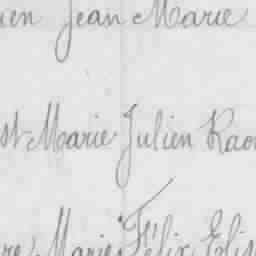 ien Jean Marie
st Marie Julien Raou
re, Marie Félix Elis